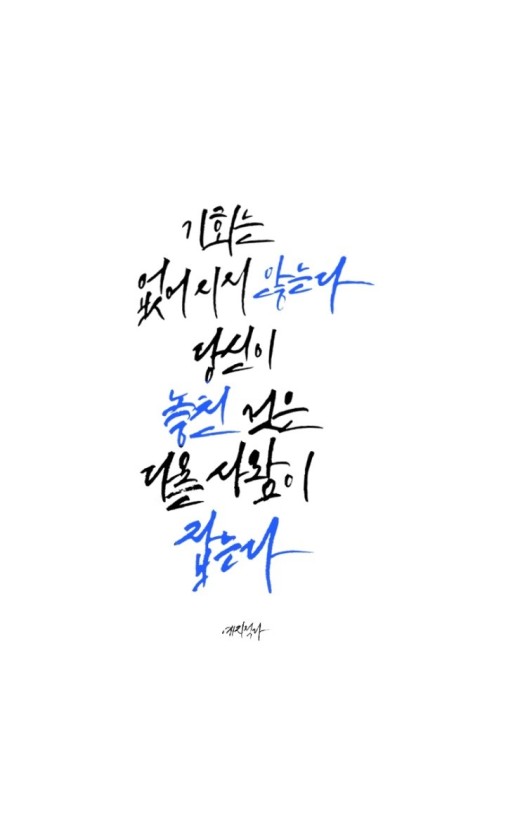 기회는
없어지지 않는다
당신이
놓친 것은
다른 사람이
잡는다